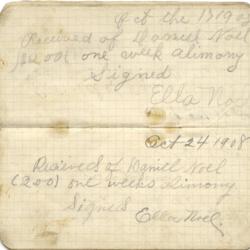 Oct the 17 190
Received of Daniel Noel
($2.00) one week alimony
Signed
Ella No
Oct 24 1908
Recieved of Daniel Noel
(2.00) one weeks alimony
Signed
Ella Noel